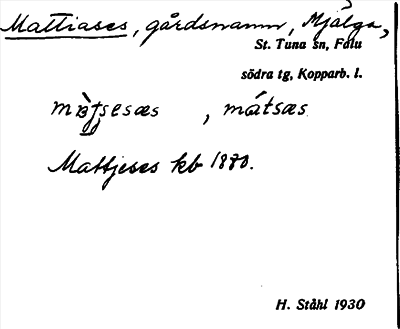 Mattiases, gårdsnamn, Mjälga,
St. Tuna sn, Falu
södra tg, Kopparb. l.
, mátsæs
Mattjeses kb 1880.
H. Ståhl 1930